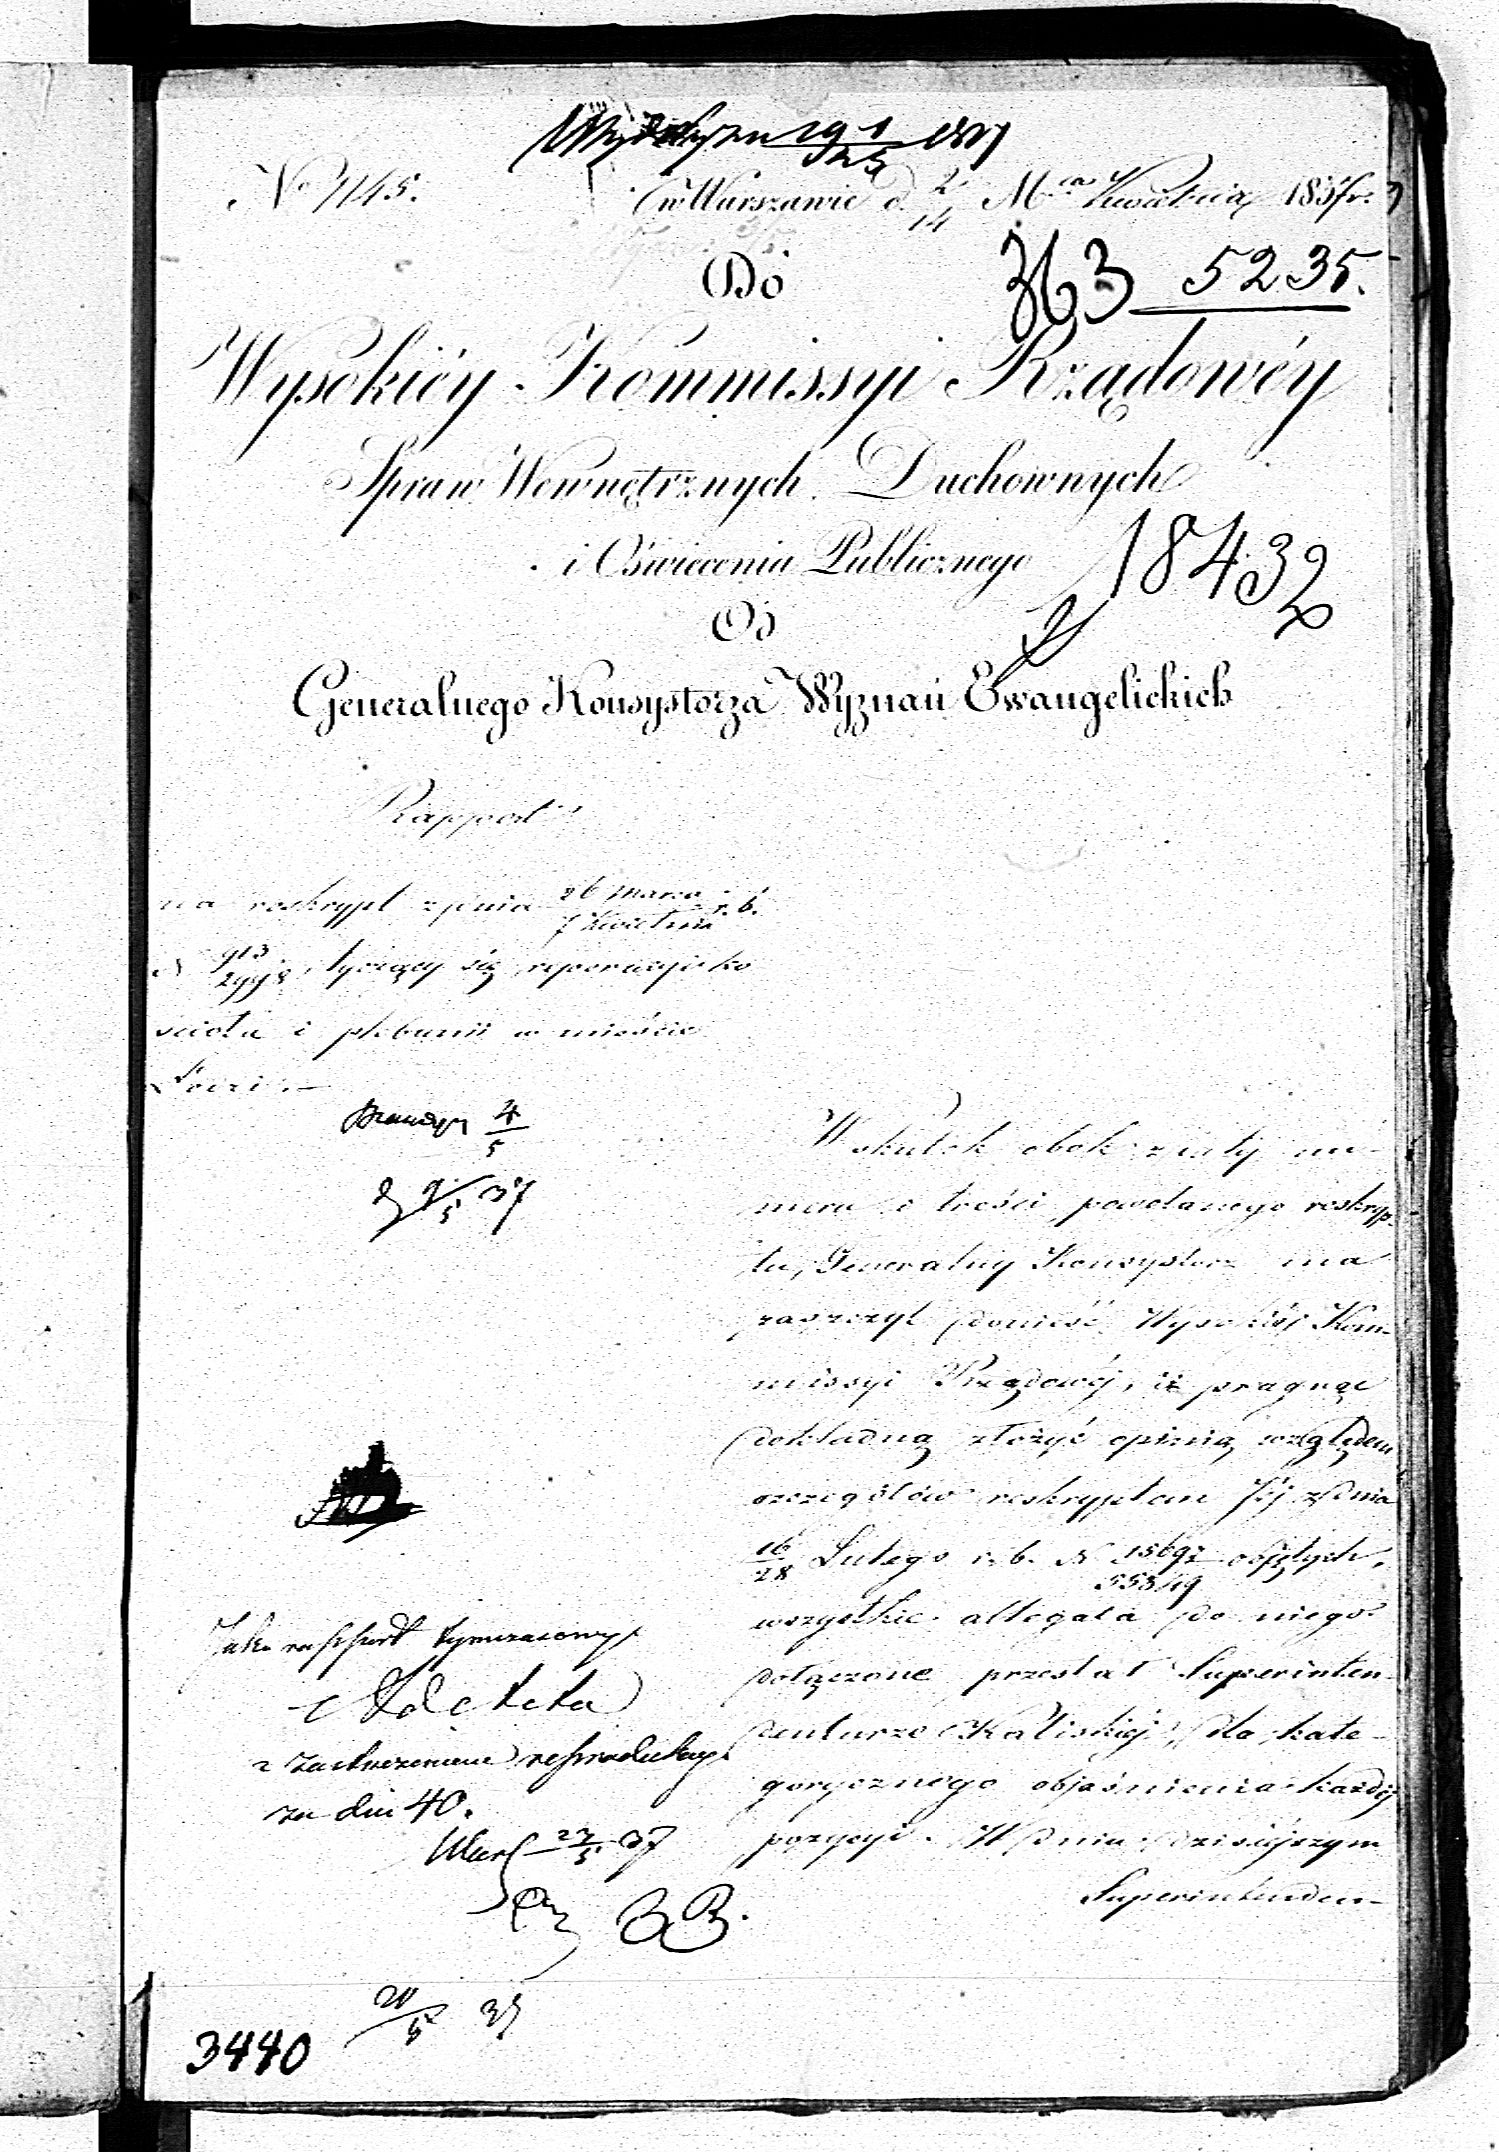 No 1145.
w Warszawie d. 2/14 Mca Kwietnia 1837 r.
363 5235.
Do
Wysokiéy Kommissyi Rządowéy
Spraw Wewnętrznych Duchownych
i Oświecenia Publicznego
18432
Od
Generalnego Konsystorza Wyznań Ewangelickich
Rapport
na reskrypt z dnia 26 Marca / 7 Kwietnia r. b.
N 913/2998, tyczący się reperacyi ko
ścioła i plebanii w mieście
Łodzi.—
4/5
9/5 37
W skutek obok z daty nu-
meru i treści powołanego reskryp-
tu, Generalny Konsystorz ma
zaszczyt donieść Wysokiéj Kom-
missyi Rządowéj, iż pragnąc
dokładną złożyć opinią względem
szczegółów reskryptem Jéj z dnia
16/28 Lutego r. b. N 15692/55519 objętych,
wszystkie allegata do niego
dołączone przesłał Superinten-
denturze Kaliskiéj, dla kate-
gorycznego objaśnienia każdéj
pozycyi. W dniu dzisiejszym
Superintenden-
Jako rapport tymczasowy
z zastrzeżeniem
za dni 40.
37
20/5 37
3440